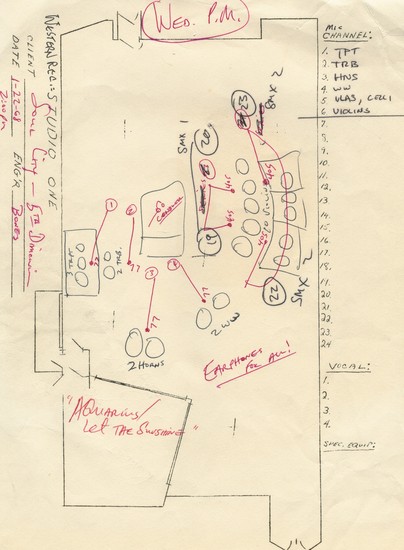 WED. P.M.
MIC
CHANNEL:
1. TPT
2. TRB
3. HNS
4. WW
5 VLAS, CELLI
6 VIOLINS
7.
8.
9.
10.
11.
12.
13.
14.
15.
16.
17.
18.
19.
20.
21.
22.
23.
24
VOCAL:
1.
2.
3.
4.
SPEC. EQUIP:
WESTERN REC: STUDIO ONE
CLIENT Soul City - 5TH Dimension
DATE 1-22-68 ENG'R Bones
2:00 PM
SMX 1
SMX 2
20
23
19
22
SMX 2
405
405
405
1
2
3
4
77
77
77
77
2 TRB.
2 HORNS
2 WW
EARPHONES
FOR ALL!
"AQUARIUS/
Let THE SUNSHINE"